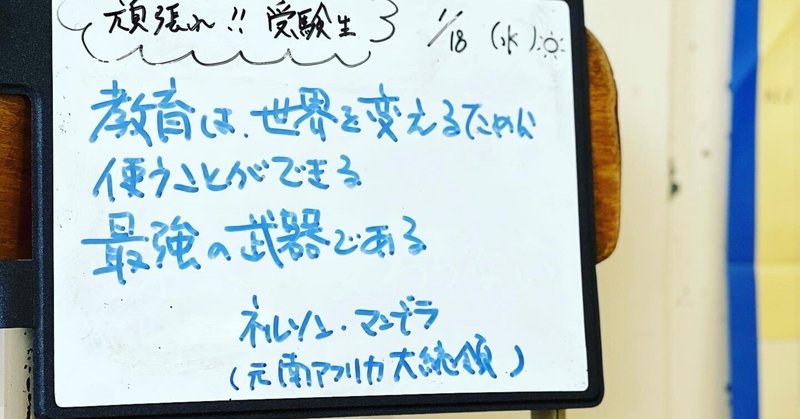 頑張れ!! 受験生 1/18 (水)
教育は、世界を変えるために
使うことができる
最強の武器である
ネルソン・マンデラ
(元南アフリカ大統領)